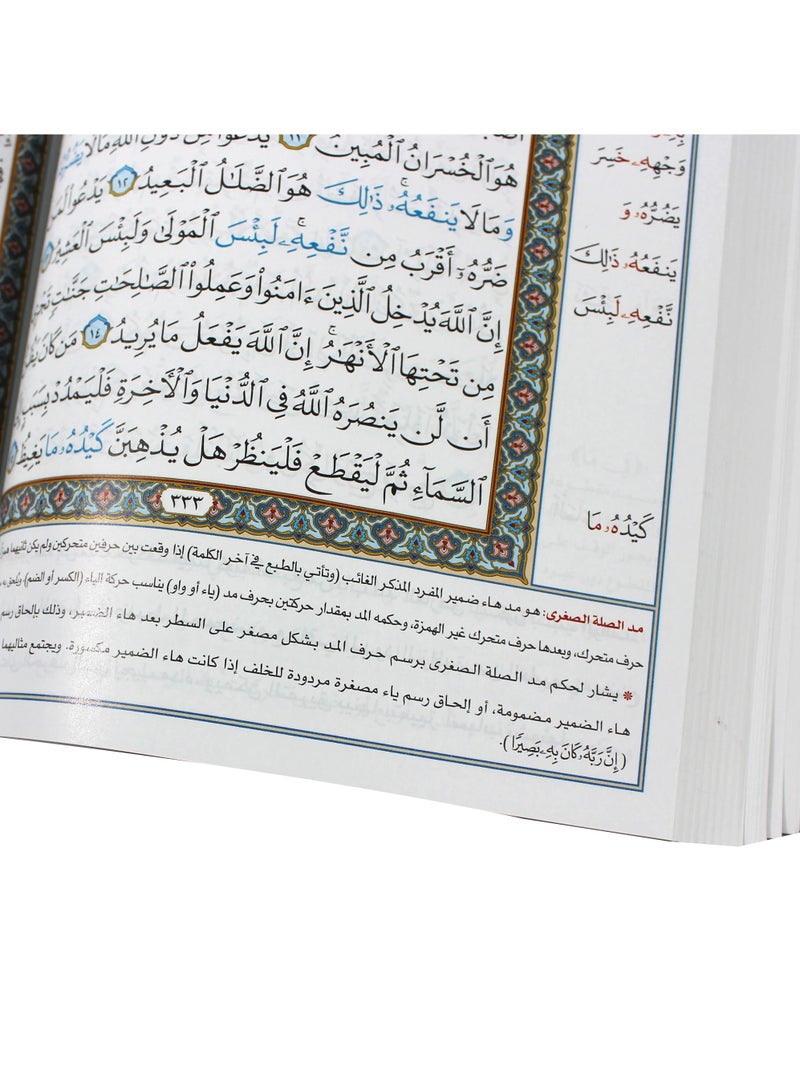 هُوَ ٱلْخُسْرَانُ ٱلْمُبِينُ ١١ يَدْعُوا۟ مِن دُونِ ٱللَّهِ مَا لَا يَضُرُّهُۥ
وَمَا لَا يَنفَعُهُۥۚ ذَٰلِكَ هُوَ ٱلضَّلَٰلُ ٱلْبَعِيدُ ١٢ يَدْعُوا۟ لَمَن
ضَرُّهُۥٓ أَقْرَبُ مِن نَّفْعِهِۦۚ لَبِئْسَ ٱلْمَوْلَىٰ وَلَبِئْسَ ٱلْعَشِيرُ
إِنَّ ٱللَّهَ يُدْخِلُ ٱلَّذِينَ ءَامَنُوا۟ وَعَمِلُوا۟ ٱلصَّٰلِحَٰتِ جَنَّٰتٍ تَجْرِى
مِن تَحْتِهَا ٱلْأَنْهَٰرُۚ إِنَّ ٱللَّهَ يَفْعَلُ مَا يُرِيدُ ١٤ مَن كَانَ
أَن لَّن يَنصُرَهُ ٱللَّهُ فِى ٱلدُّنْيَا وَٱلْأَخِرَةِ فَلْيَمْدُدْ بِسَبَبٍ
ٱلسَّمَآءِ ثُمَّ لْيَقْطَعْ فَلْيَنظُرْ هَلْ يُذْهِبَنَّ كَيْدُهُۥ مَا يَغِيظُ
٣٣٣
وَجْهِهِۦ خَسِرَ
يَضُرُّهُۥ وَ
يَنفَعُهُۥ ذَٰلِكَ
نَّفْعِهِۦ لَبِئْسَ
كَيْدُهُۥ مَا
مد الصلة الصغرى: هو مد هاء ضمير المفرد المذكر الغائب (وتأتي بالطبع في آخر الكلمة) إذا وقعت بين حرفين متحركين ولم يكن ثانيهما
حرف متحرك، وبعدها حرف متحرك غير الهمزة، وحكمه المد بمقدار حركتين بحرف مد (ياء أو واو) يناسب حركة الهاء (الكسر أو الضم)،
* يشار لحكم مد الصلة الصغرى برسم حرف المد بشكل مصغر على السطر بعد هاء الضمير، وذلك بإلحاق رسم
هاء الضمير مضمومة، أو إلحاق رسم ياء مصغرة مردودة للخلف إذا كانت هاء الضمير مكسورة. ويجتمع مثاليهما
(إِنَّ رَبَّهُۥ كَانَ بِهِۦ بَصِيرًا).